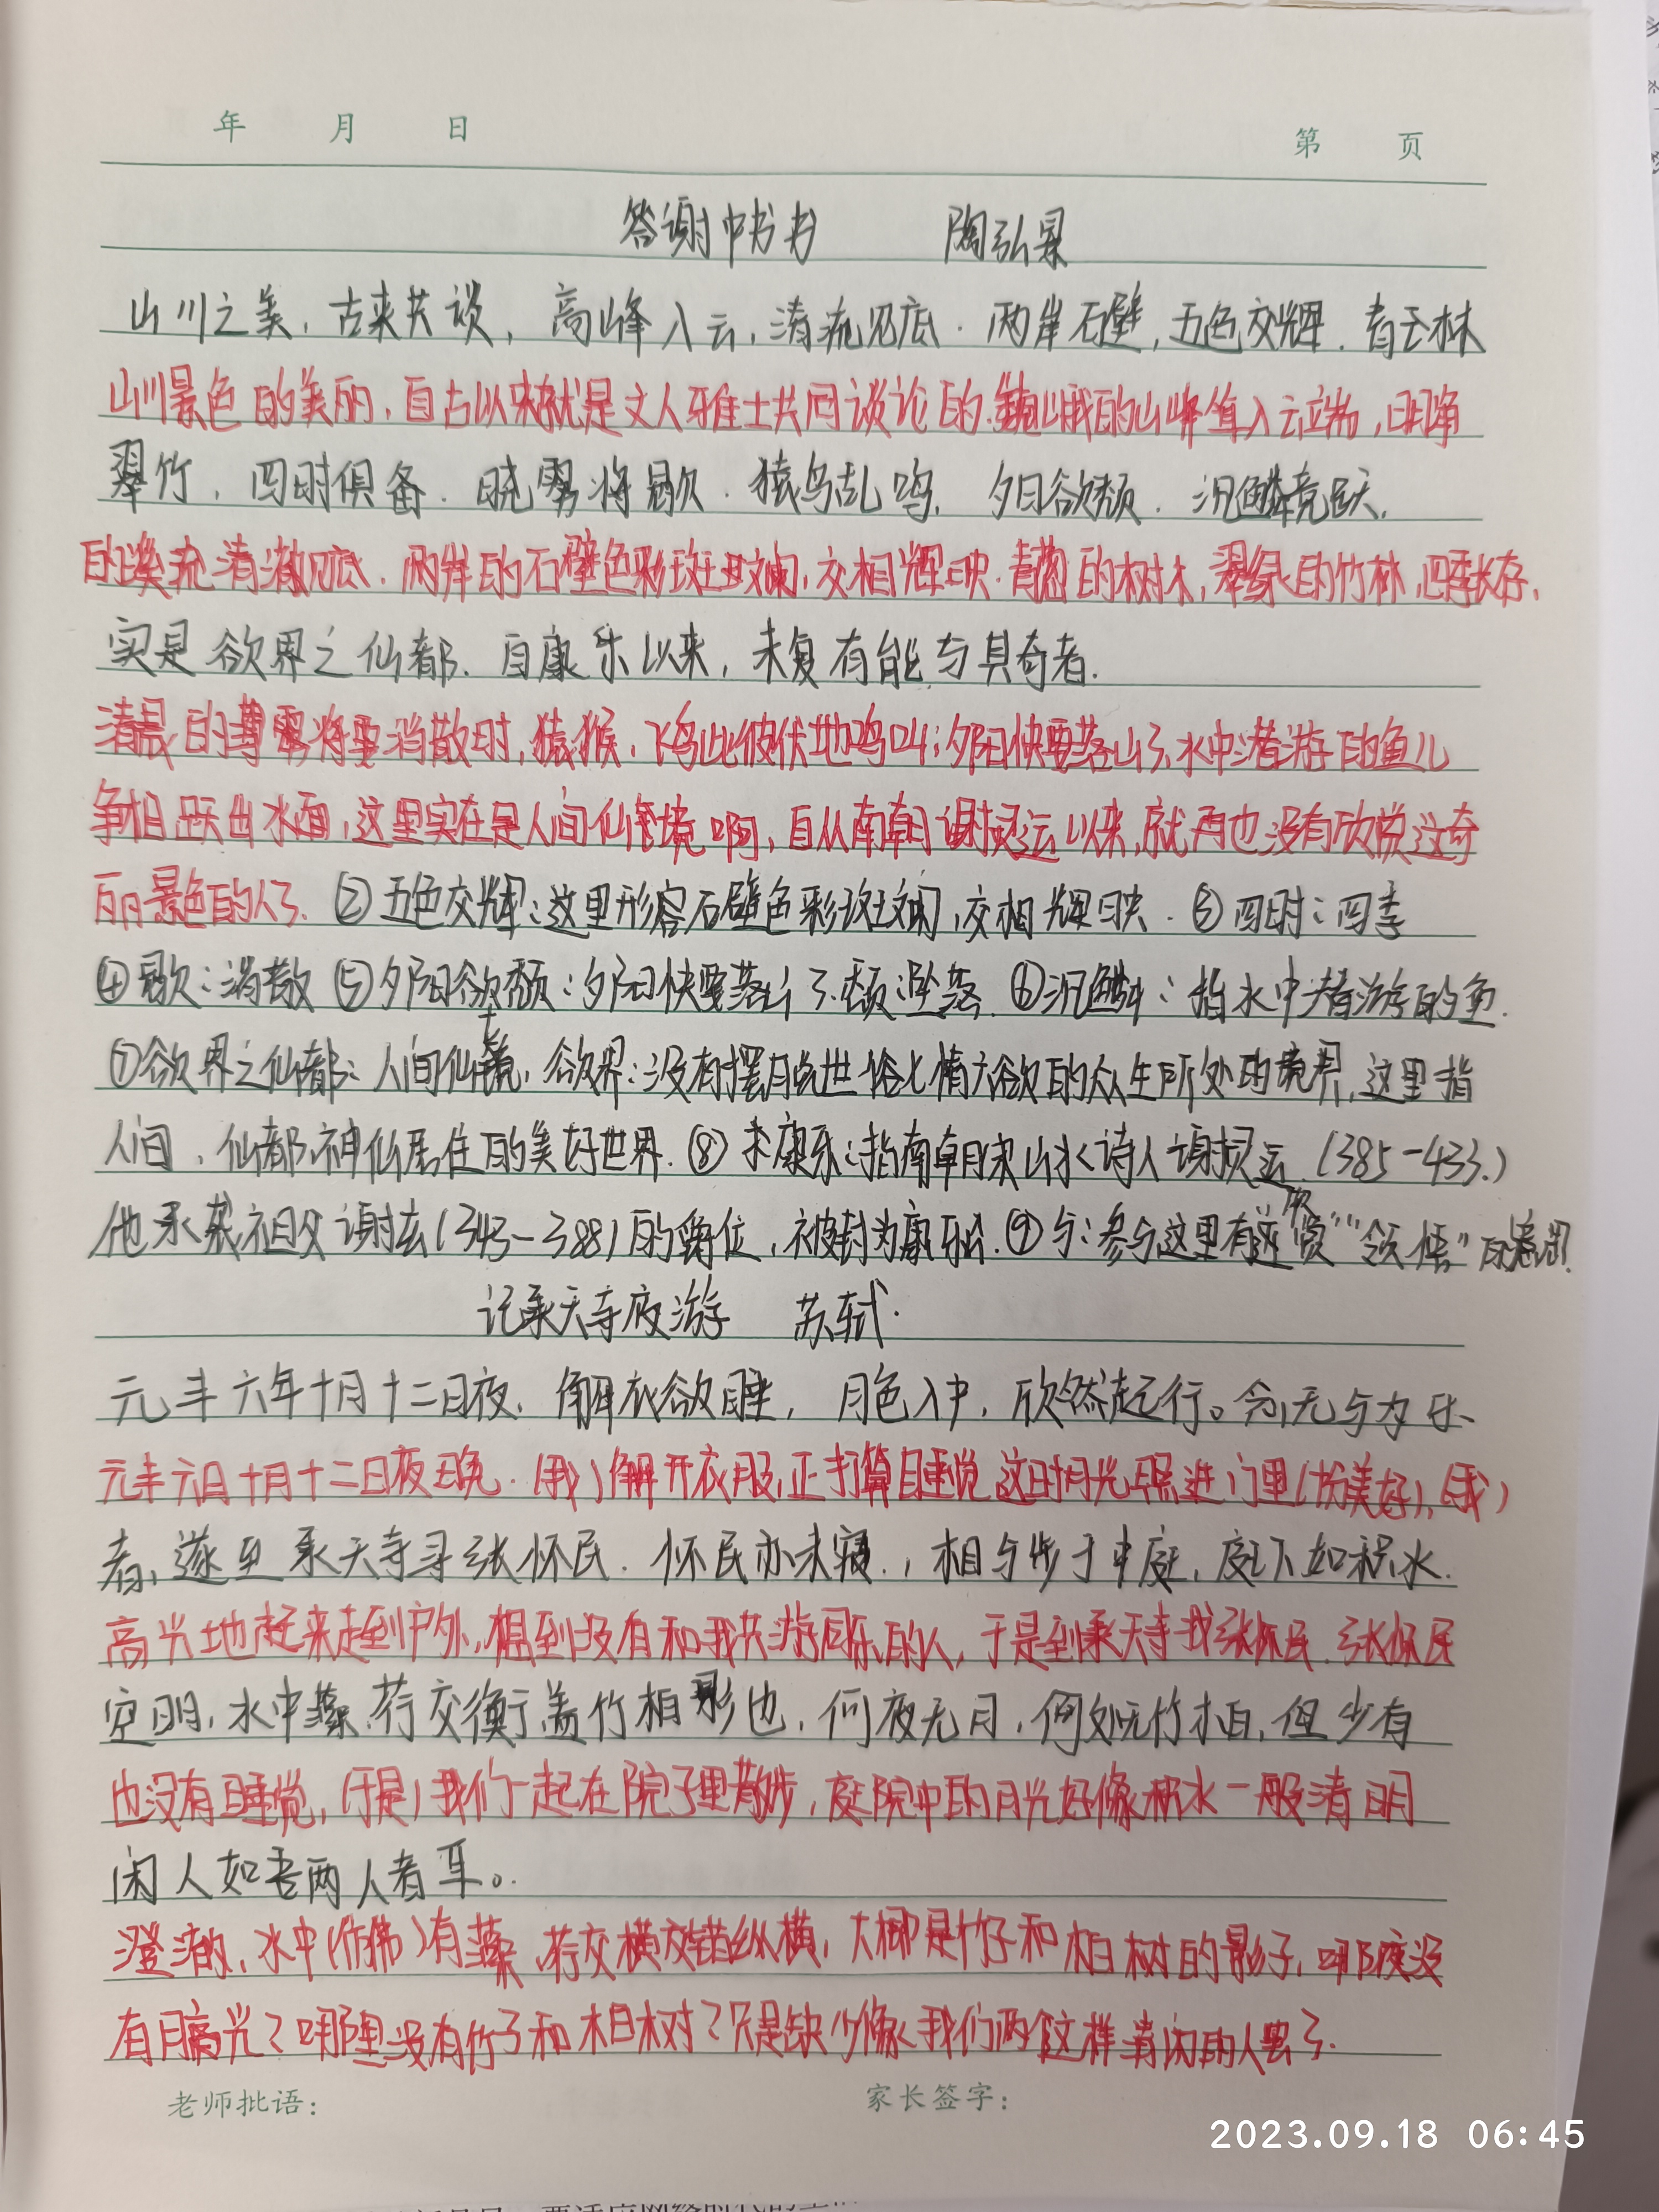 年 月 日 第 页
答谢中书书 陶弘景
山川之美，古来共谈，高峰入云，清流见底．两岸石壁，五色交辉．青玉林
山川景色的美丽，自古以来就是文人雅士共同谈论的．巍峨的山峰耸入云端，明净
翠竹，四时俱备．晓雾将歇．猿鸟乱鸣．夕日欲颓．沉鳞竞跃．
的溪流清澈见底．两岸的石壁色彩斑斓，交相辉映．青葱的树木，翠绿的竹林，四季长存，
实是欲界之仙都．自康乐以来，未复有能与其奇者．
清晨的薄雾将要消散时，猿猴、飞鸟此彼伏地鸣叫；夕阳快要落山了，水中潜游的鱼儿
争相跃出水面，这里实在是人间仙境啊，自从南朝谢灵运以来，就再也没有欣赏这奇
丽景色的人了．②五色交辉：这里形容石壁色彩斑斓，交相辉映．③四时：四季
④歇：消散 ⑤夕阳欲颓：夕阳快要落山了．颓：坠落．⑥沉鳞：指水中潜游的鱼．
⑦欲界之仙都：人间仙境，欲界：没有摆脱世俗七情六欲的众生所处的境界，这里指
人间，仙都：神仙居住的美好世界．⑧康乐：指南朝宋山水诗人谢灵运．（385－433．）
他承袭祖父谢玄（343－388）的爵位，被封为康乐公．⑨与：参与这里有欣赏""领悟"的意思．
记承天寺夜游 苏轼．
元丰六年十月十二日夜．解衣欲睡，月色入户，欣然起行。念无与为乐
元丰六日十月十二日夜晚．（我）解开衣服，正打算睡觉，这时月光照进门里（美好），（我）
者，遂至承天寺寻张怀民．怀民亦未寝．，相与步于中庭，庭下如积水
高兴地起来走到户外，想到没有和我共游同乐的人，于是到承天寺找张怀民．张怀民
空明，水中藻、荇交横，盖竹柏影也，何夜无月，何处无竹柏，但少有
也没有睡觉，（于是）我们一起在院子里散步，庭院中的月光好像积水一般清明
闲人如吾两人者耳。
澄澈，水中（仿佛）有藻、荇交横交错纵横，大概是竹子和柏树的影子，哪夜没
有月亮？哪里没有竹子和柏树？只是缺少像我们两个这样清闲的人罢了．
老师批语： 家长签字：
2023.09.18 06:45